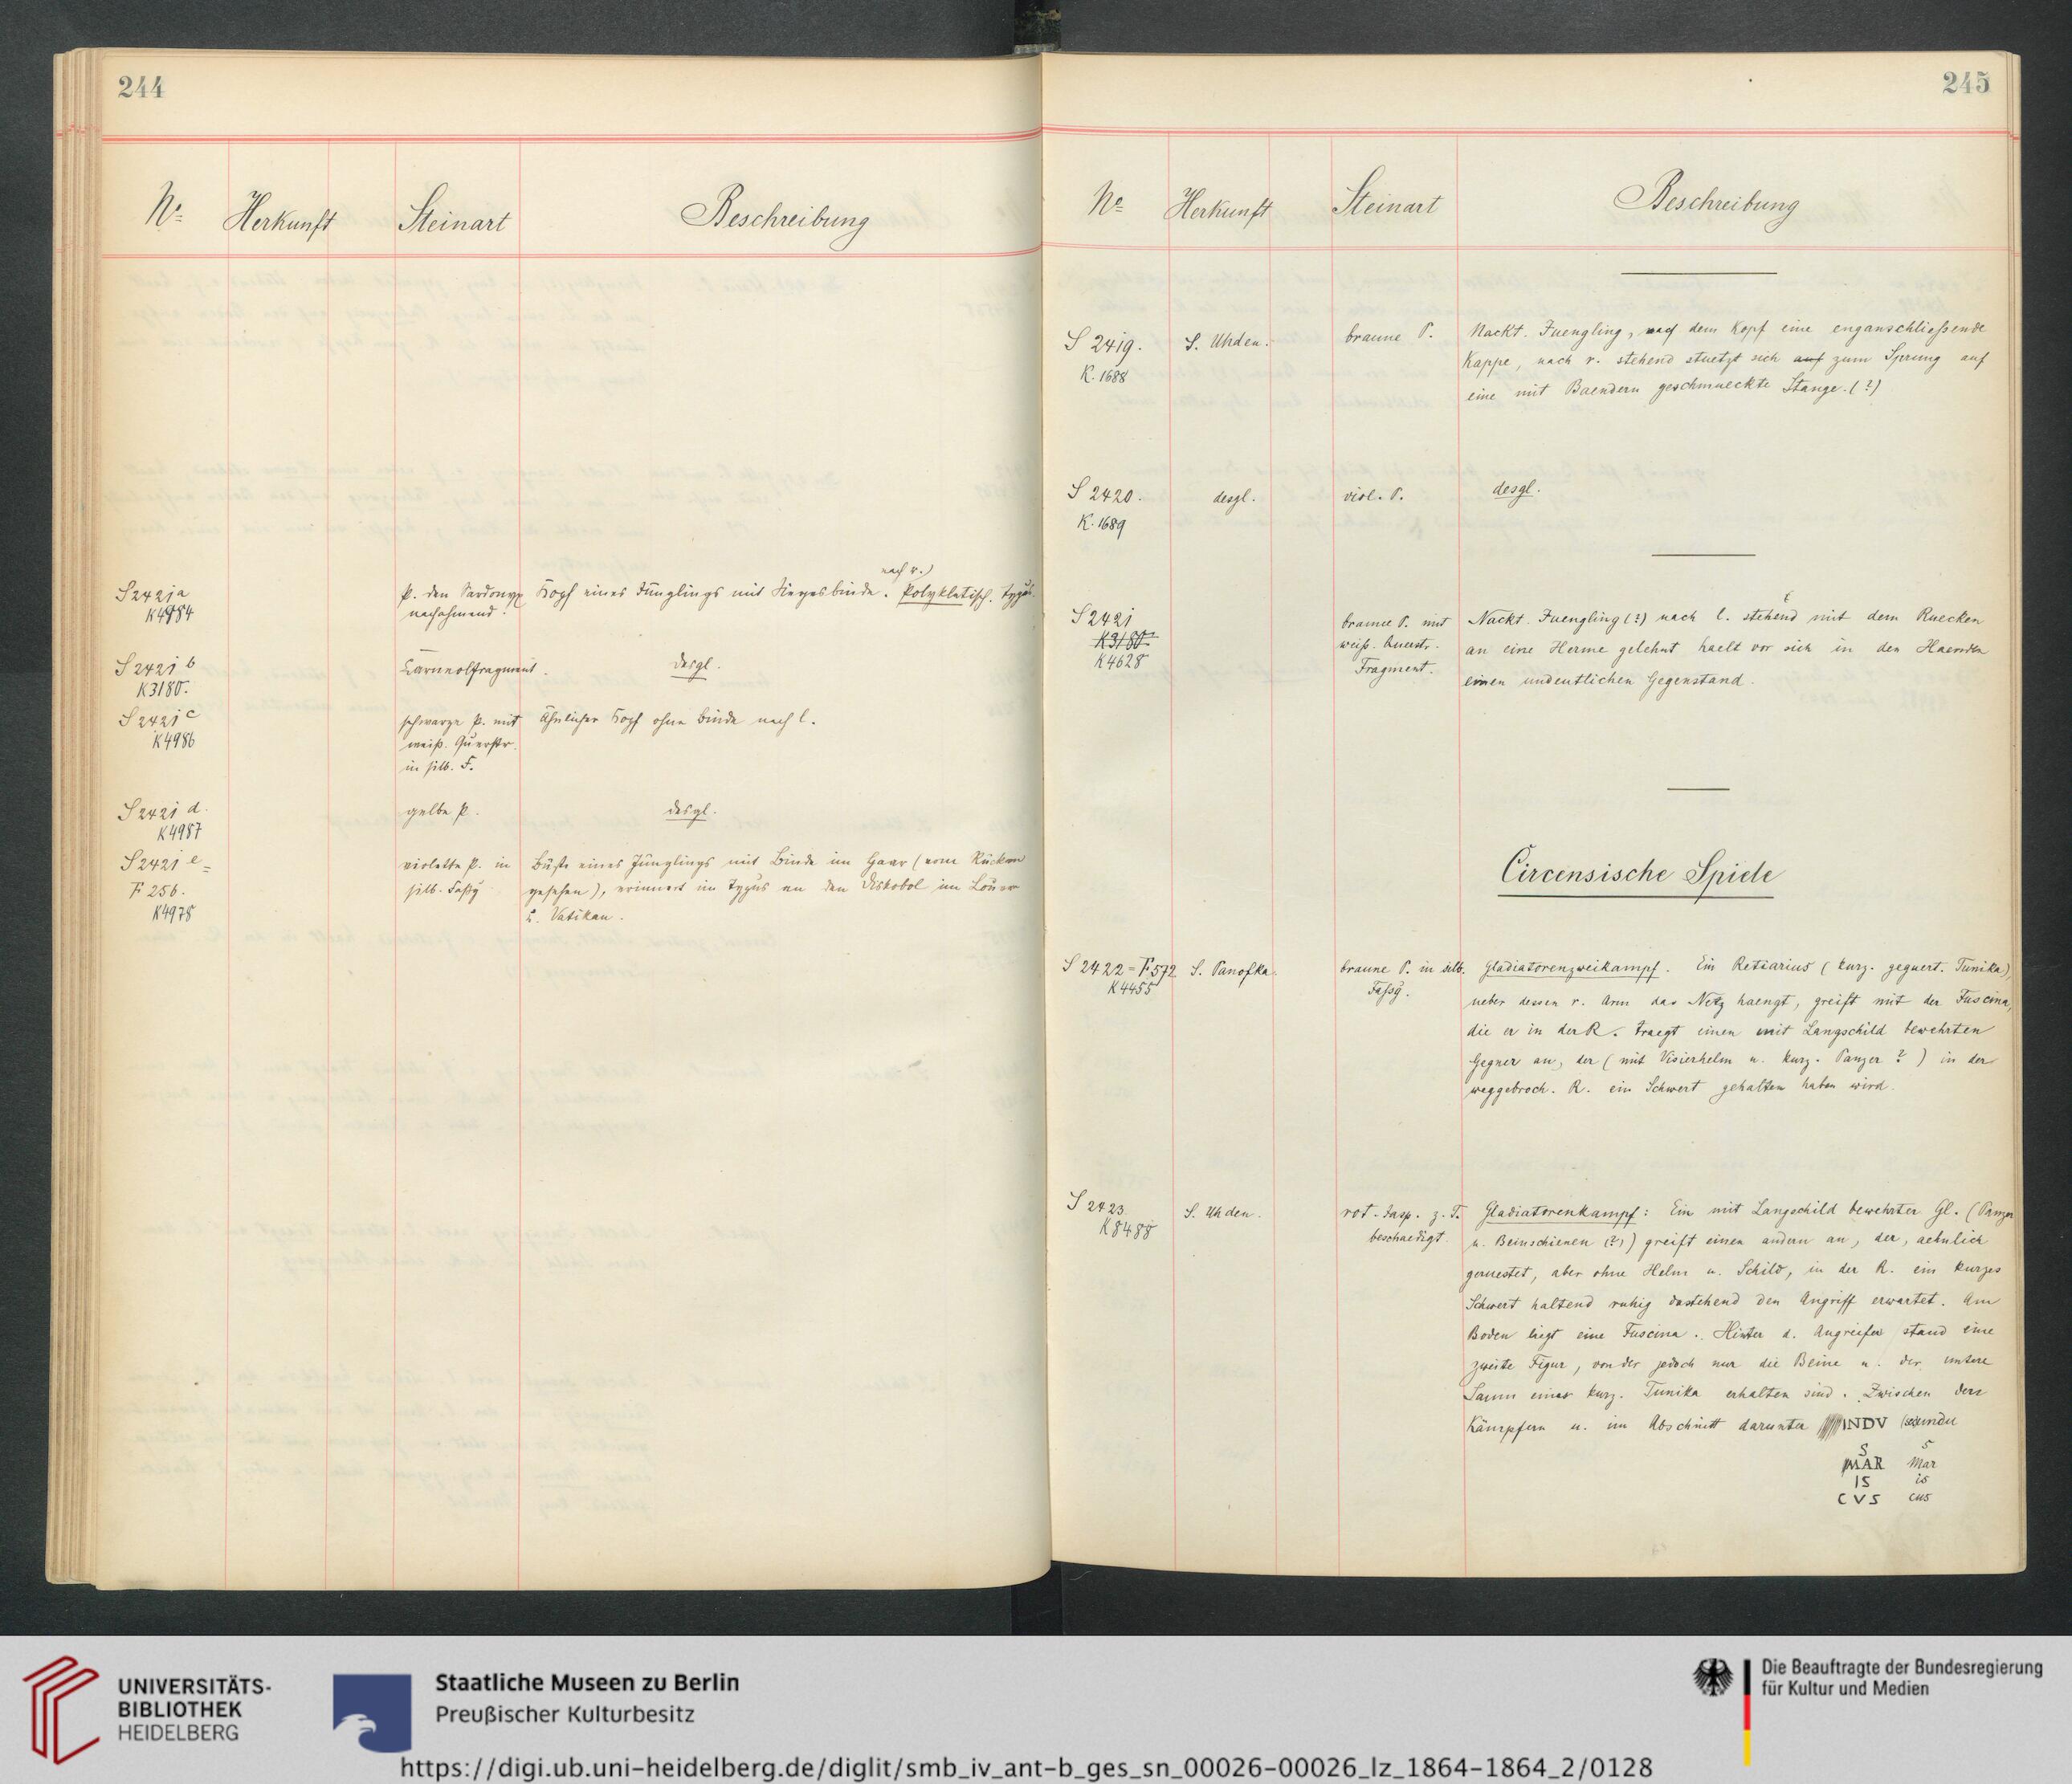 244
No Herkunft Steinart Beschreibung
nach r.)
S 2421 a P. den Sardonyx Kopf eines Jünglings mit Siegesbinde. Polykletisch. Typus.
K4984 nachahmend.
S 2421 b Karneolfragment. desgl.
K3180.
S 2421 c schwarze P. mit Ähnlicher Kopf ohne Binde nach l.
K4986 weiß. Querstr.
in silb. F.
S 2421 d. gelbe P. desgl.
K4987
S 2421 e = violette P. in Büste eines Jünglings mit Binde im Haar (vom Rücken
F. 256. silb. Fassg gesehen), erinnert im Typus an den Diskobol im Louvre
K4978 u. Vatikan.
245
No Herkunft Steinart Beschreibung
S 2419. S. Uhden. braune P. Nackt. Juengling, auf dem Kopf eine enganschließende
K. 1688 Kappe, nach r. stehend stuetzt sich auf zum Sprung auf
eine mit Baendern geschmueckte Stange. (?)
S 2420. desgl. viol. P. desgl.
K. 1689
S 2421 braune P. mit Nackt. Juengling (?) nach l. stehend mit dem Ruecken
K3180 weiß. Querstr. an eine Herme gelehnt haelt vor sich in den Haenden
K4628 Fragment. einen undeutlichen Gegenstand.
Circensische Spiele
S 2422 = F. 572 S. Panofka. braune P. in silb. Gladiatorenzweikampf. Ein Retiarius (kurz. geguert. Tunika)
K4455 Fassg. ueber dessen r. Arm das Netz haengt, greift mit der Fuscina,
die er in der R. traegt einen mit Langschild bewehrten
Gegner an, der (mit Visierhelm u. kurz. Panzer ?) in der
weggebroch. R. ein Schwert gehalten haben wird.
S 2423 S. Uhden. rot. Jasp. z. T. Gladiatorenkampf: Ein mit Langschild bewehrter Gl. (Panzer
K8488 beschaedigt. u. Beinschienen (?)) greift einen andern an, der, aehnlich
geruestet, aber ohne Helm u. Schild, in der R. ein kurzes
Schwert haltend ruhig dastehend den Angriff erwartet. Am
Boden liegt eine Fuscina. Hinter d. Angreifer stand eine
zweite Figur, von der jedoch nur die Beine u. der untere
Saum einer kurz. Tunika erhalten sind. Zwischen den
Kämpfern u. im Abschnitt darunter INDV (sec)undu
S s
MAR Mar
IS is
CVS cus
UNIVERSITÄTS-
BIBLIOTHEK
HEIDELBERG
Staatliche Museen zu Berlin
Preußischer Kulturbesitz
Die Beauftragte der Bundesregierung
für Kultur und Medien
https://digi.ub.uni-heidelberg.de/diglit/smb_iv_ant-b_ges_sn_00026-00026_lz_1864-1864_2/0128